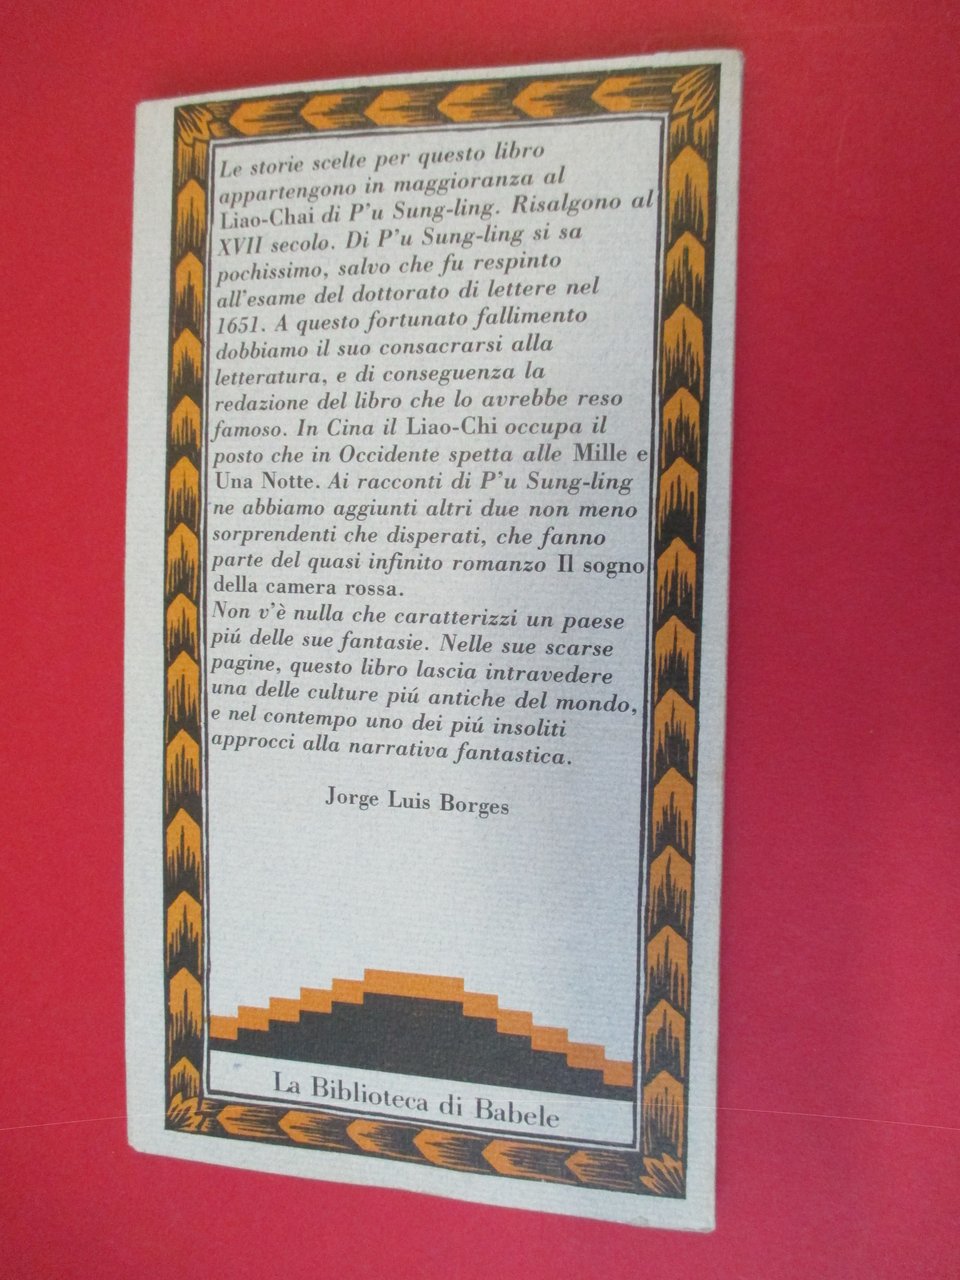 Le storie scelte per questo libro
appartengono in maggioranza al
Liao-Chai di P'u Sung-ling. Risalgono al
XVII secolo. Di P'u Sung-ling si sa
pochissimo, salvo che fu respinto
all'esame del dottorato di lettere nel
1651. A questo fortunato fallimento
dobbiamo il suo consacrarsi alla
letteratura, e di conseguenza la
redazione del libro che lo avrebbe reso
famoso. In Cina il Liao-Chi occupa il
posto che in Occidente spetta alle Mille e
Una Notte. Ai racconti di P'u Sung-ling
ne abbiamo aggiunti altri due non meno
sorprendenti che disperati, che fanno
parte del quasi infinito romanzo Il sogno
della camera rossa.
Non v'è nulla che caratterizzi un paese
piú delle sue fantasie. Nelle sue scarse
pagine, questo libro lascia intravedere
una delle culture piú antiche del mondo,
e nel contempo uno dei piú insoliti
approcci alla narrativa fantastica.
Jorge Luis Borges
La Biblioteca di Babele